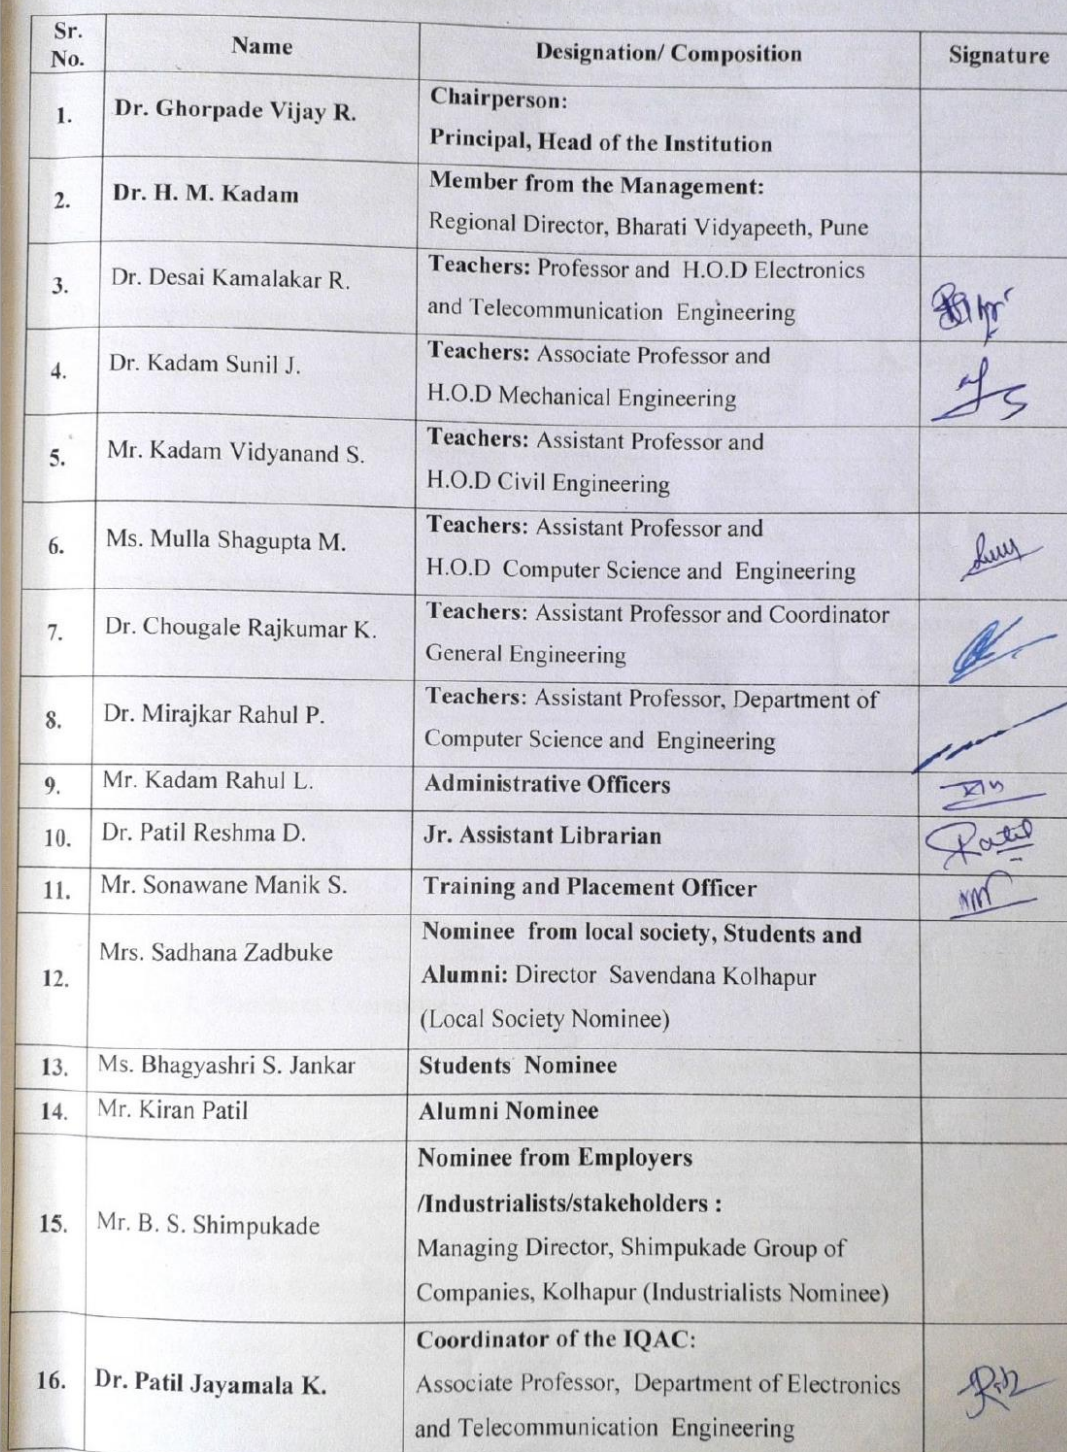 Sr. No. Name Designation/ Composition Signature
1. Dr. Ghorpade Vijay R. Chairperson:
Principal, Head of the Institution
2. Dr. H. M. Kadam Member from the Management:
Regional Director, Bharati Vidyapeeth, Pune
3. Dr. Desai Kamalakar R. Teachers: Professor and H.O.D Electronics
and Telecommunication Engineering
4. Dr. Kadam Sunil J. Teachers: Associate Professor and
H.O.D Mechanical Engineering
5. Mr. Kadam Vidyanand S. Teachers: Assistant Professor and
H.O.D Civil Engineering
6. Ms. Mulla Shagupta M. Teachers: Assistant Professor and
H.O.D Computer Science and Engineering
7. Dr. Chougale Rajkumar K. Teachers: Assistant Professor and Coordinator
General Engineering
8. Dr. Mirajkar Rahul P. Teachers: Assistant Professor, Department of
Computer Science and Engineering
9. Mr. Kadam Rahul L. Administrative Officers
10. Dr. Patil Reshma D. Jr. Assistant Librarian Patil
11. Mr. Sonawane Manik S. Training and Placement Officer
12. Mrs. Sadhana Zadbuke Nominee from local society, Students and
Alumni: Director Savendana Kolhapur
(Local Society Nominee)
13. Ms. Bhagyashri S. Jankar Students Nominee
14. Mr. Kiran Patil Alumni Nominee
15. Mr. B. S. Shimpukade Nominee from Employers
/Industrialists/stakeholders :
Managing Director, Shimpukade Group of
Companies, Kolhapur (Industrialists Nominee)
16. Dr. Patil Jayamala K. Coordinator of the IQAC:
Associate Professor, Department of Electronics
and Telecommunication Engineering